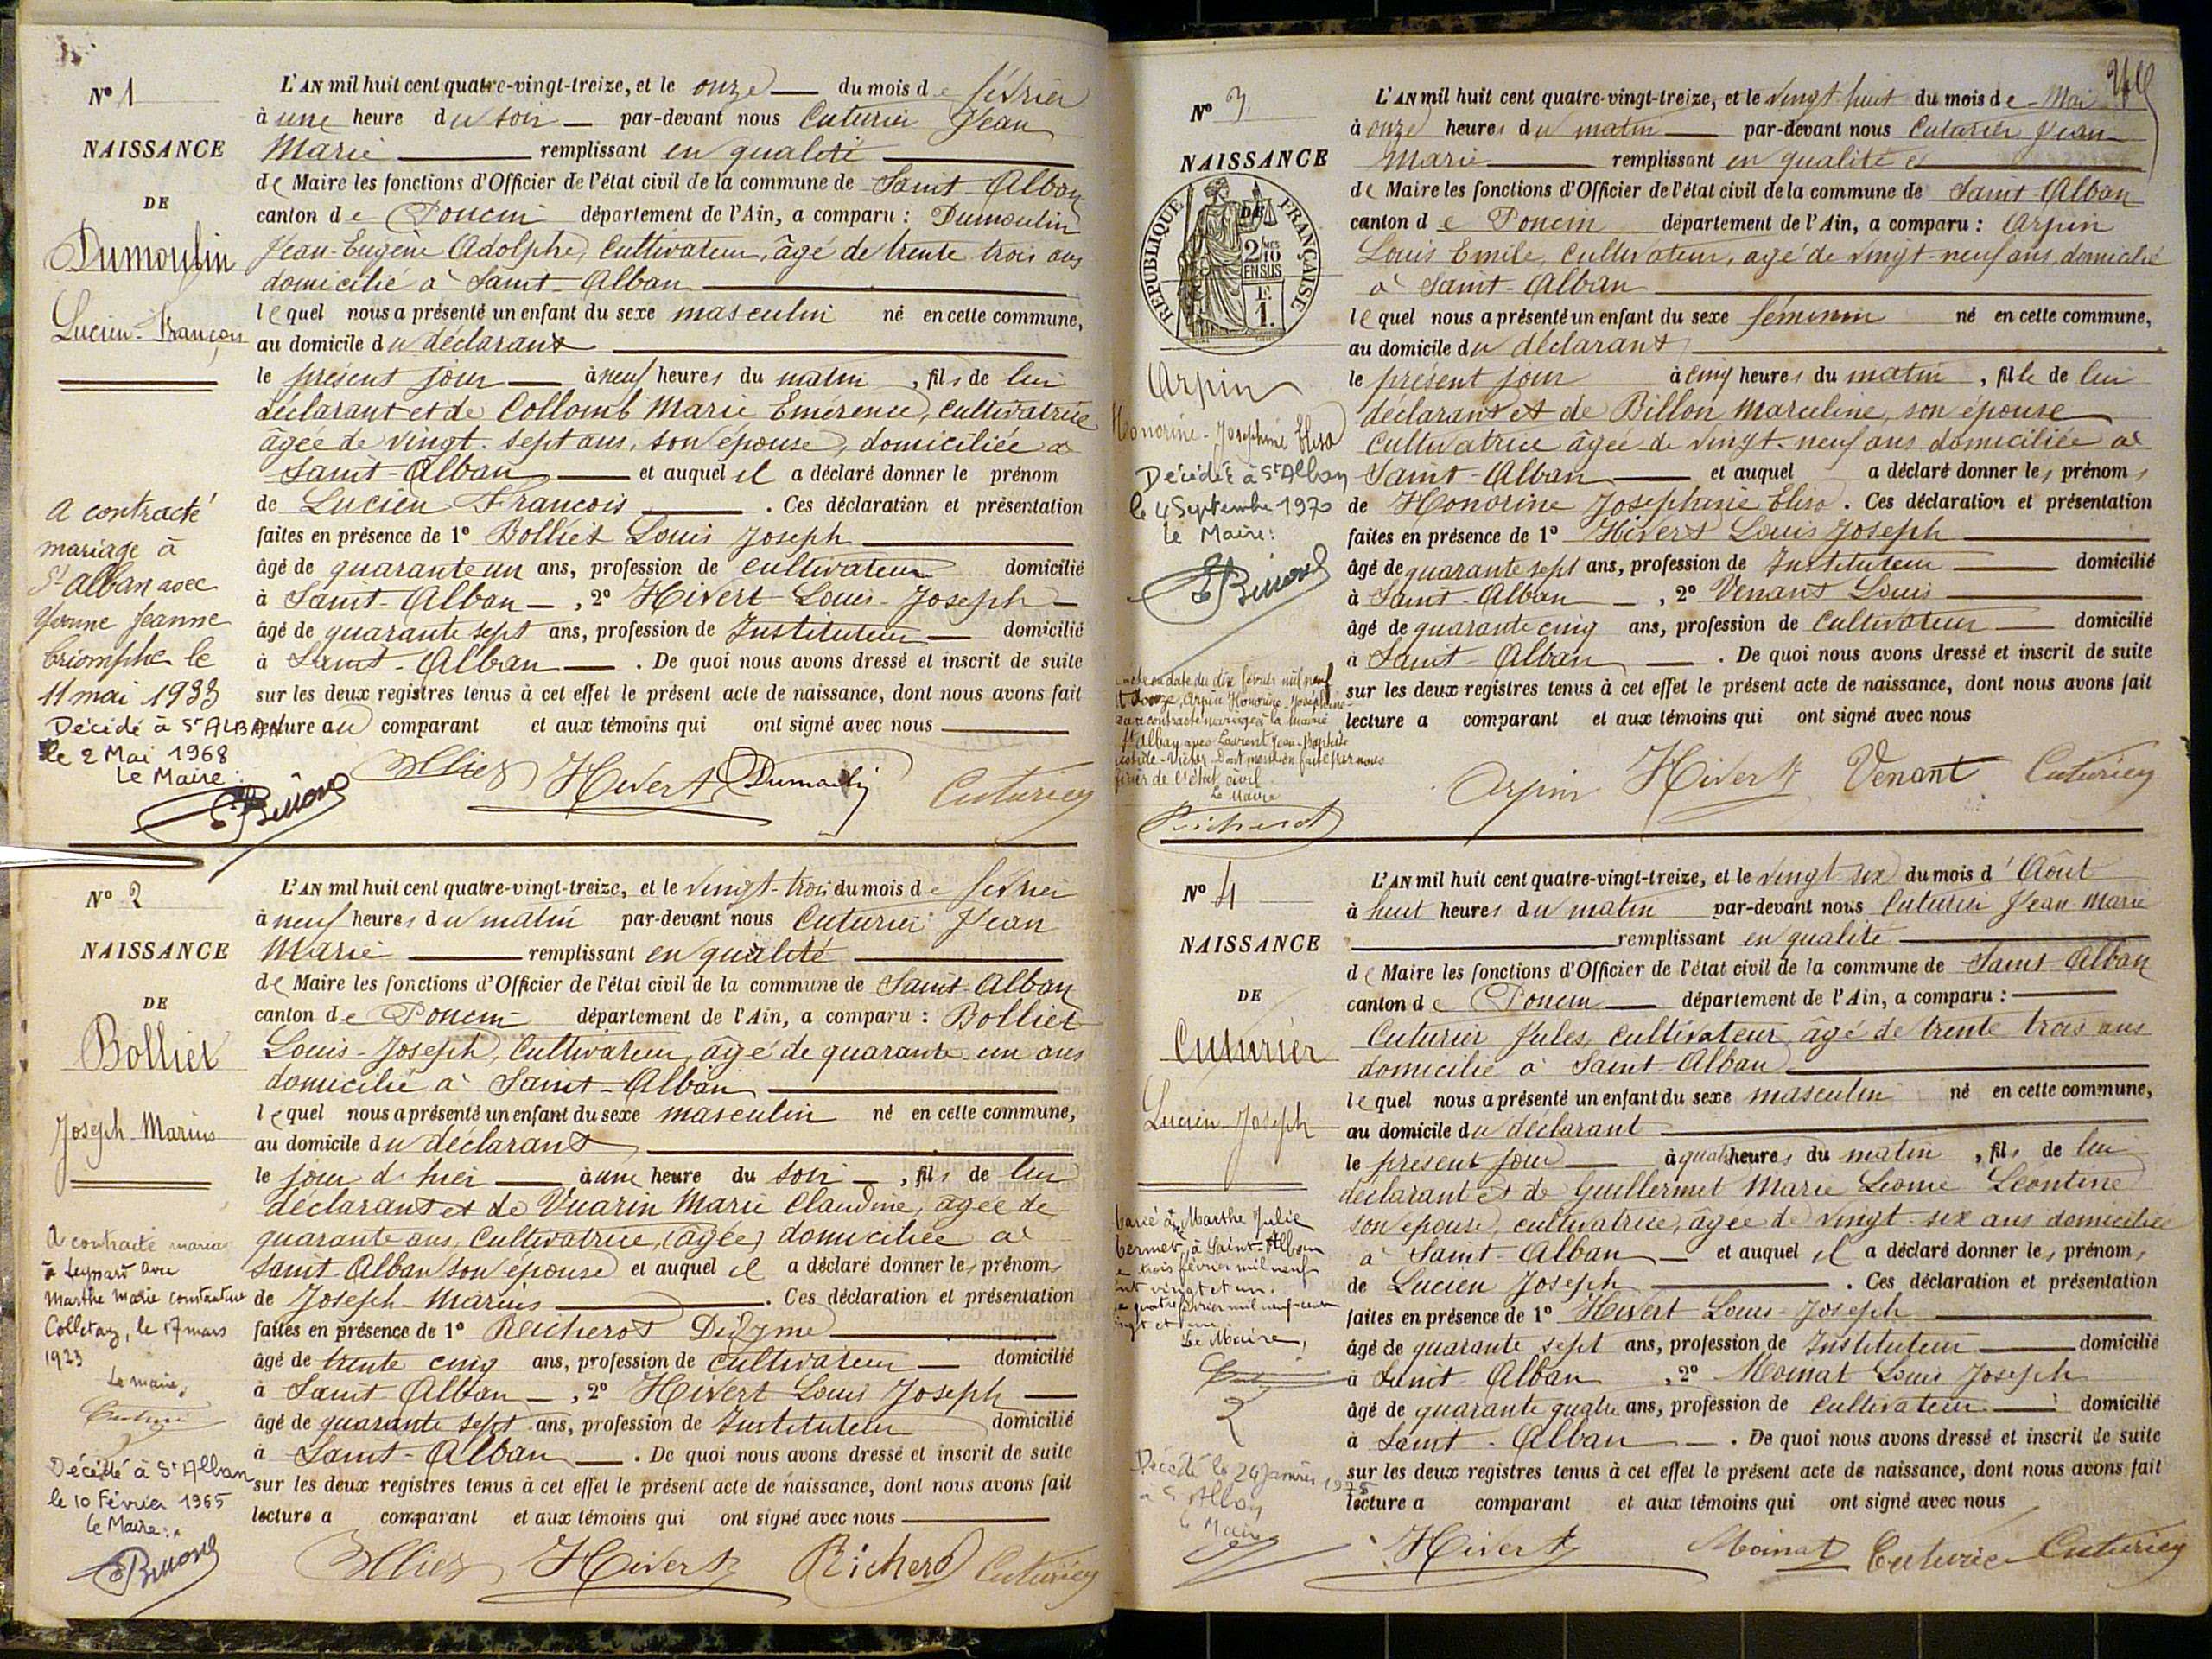 Nº 1
NAISSANCE
DE
Dumoulin
Lucien-François
A contracté
mariage à
St Alban avec
Yvonne Jeanne
Triomphe le
11 mai 1933
Décédé à St ALBAN
le 2 Mai 1968
Le Maire:
L'AN mil huit cent quatre-vingt-treize, et le onze du mois de février
à une heure du soir par-devant nous Cuturier Jean
Marie remplissant en qualité
de Maire les fonctions d'Officier de l'état civil de la commune de Saint-Alban
canton de Poncin département de l'Ain, a comparu : Dumoulin
Jean-Eugène Adolphe, Cultivateur, âgé de trente trois ans
domicilié à Saint-Alban
lequel nous a présenté un enfant du sexe masculin né en cette commune,
au domicile du déclarant
le présent jour à neuf heures du matin, fils de lui
déclarant et de Collomb Marie Emérence, cultivatrice
âgée de vingt-sept ans, son épouse, domiciliée à
Saint-Alban et auquel il a déclaré donner le prénom
de Lucien François. Ces déclaration et présentation
faites en présence de 1º Bolliet Louis Joseph
âgé de quarante un ans, profession de cultivateur domicilié
à Saint-Alban, 2º Hivert Louis-Joseph
âgé de quarante sept ans, profession de Instituteur domicilié
à Saint-Alban. De quoi nous avons dressé et inscrit de suite
sur les deux registres tenus à cet effet le présent acte de naissance, dont nous avons fait
lecture au comparant et aux témoins qui ont signé avec nous
Hivert Dumoulin Cuturier
Nº 2
NAISSANCE
DE
Bolliet
Joseph-Marius
A contracté mariage
à Leyssard avec
Marthe Marie Constantine
Colletaz, le 17 mars
1923
Le maire,
Cuturier
Décédé à St Alban
le 10 Février 1965
Le Maire:
L'AN mil huit cent quatre-vingt-treize, et le vingt-trois du mois de février
à neuf heures du matin par-devant nous Cuturier Jean
Marie remplissant en qualité
de Maire les fonctions d'Officier de l'état civil de la commune de Saint-Alban
canton de Poncin département de l'Ain, a comparu : Bolliet
Louis-Joseph, Cultivateur, âgé de quarante un ans
domicilié à Saint-Alban
lequel nous a présenté un enfant du sexe masculin né en cette commune,
au domicile du déclarant
le jour d'hier à une heure du soir, fils de lui
déclarant et de Vuarin Marie Claudine, âgée de
quarante ans, Cultivatrice, (âgée) domiciliée à
Saint-Alban son épouse et auquel il a déclaré donner les prénoms
de Joseph-Marius. Ces déclaration et présentation
faites en présence de 1º Reicherot Didyme
âgé de trente cinq ans, profession de cultivateur domicilié
à Saint Alban, 2º Hivert Louis Joseph
âgé de quarante sept ans, profession de Instituteur domicilié
à Saint-Alban. De quoi nous avons dressé et inscrit de suite
sur les deux registres tenus à cet effet le présent acte de naissance, dont nous avons fait
lecture a comparant et aux témoins qui ont signé avec nous
Hivert Richerot Cuturier
Nº 3
NAISSANCE
DE
RÉPUBLIQUE FRANÇAISE
2/10 MES
EN SUS
F.
1.
Arpin
Honorine-Joséphine Elisa
Décédée à St Alban
le 4 Septembre 1970
Le Maire:
en date du dix février mil neuf
Arpin Honorine-Joséphine
a contracté mariage à la mairie
St Alban avec Laurent Jean-Baptiste
Victor. Dont mention faite par nous
officier de l'état civil
Le Maire
Richerot
L'AN mil huit cent quatre-vingt-treize, et le vingt huit du mois de Mai
à onze heures du matin par-devant nous Cuturier Jean
Marie remplissant en qualité
de Maire les fonctions d'Officier de l'état civil de la commune de Saint Alban
canton de Poncin département de l'Ain, a comparu : Arpin
Louis Emile, Cultivateur, âgé de vingt-neuf ans, domicilié
à Saint-Alban
lequel nous a présenté un enfant du sexe féminin né en cette commune,
au domicile du déclarant
le présent jour à cinq heures du matin, fille de lui
déclarant et de Billon Marceline, son épouse
Cultivatrice âgée de vingt-neuf ans domiciliée à
Saint-Alban et auquel a déclaré donner les prénoms
de Honorine Joséphine Elisa. Ces déclaration et présentation
faites en présence de 1º Hivert Louis Joseph
âgé de quarante sept ans, profession de Instituteur domicilié
à Saint-Alban, 2º Venant Louis
âgé de quarante cinq ans, profession de Cultivateur domicilié
à Saint-Alban. De quoi nous avons dressé et inscrit de suite
sur les deux registres tenus à cet effet le présent acte de naissance, dont nous avons fait
lecture a comparant et aux témoins qui ont signé avec nous
Arpin Hivert Venant Cuturier
Nº 4
NAISSANCE
DE
Cuturier
Lucien-Joseph
Marié à Marthe Julie
à Saint-Alban
trois février mil neuf
cent vingt et un.
quatre février mil neuf cent
vingt et un
Le Maire,
2
Décédé le 24 Janvier 1975
à St Alban
Le Maire
L'AN mil huit cent quatre-vingt-treize, et le vingt-six du mois d'Août
à huit heures du matin par-devant nous Cuturier Jean Marie
remplissant en qualité
de Maire les fonctions d'Officier de l'état civil de la commune de Saint-Alban
canton de Poncin département de l'Ain, a comparu :
Cuturier Jules, cultivateur âgé de trente trois ans
domicilié à Saint-Alban
lequel nous a présenté un enfant du sexe masculin né en cette commune,
au domicile du déclarant
le présent jour à quatre heures du matin, fils de lui
déclarant et de Guillermet Marie Léonie Léontine
son épouse, cultivatrice, âgée de vingt-six ans domiciliée
à Saint-Alban et auquel il a déclaré donner les prénoms
de Lucien Joseph. Ces déclaration et présentation
faites en présence de 1º Hivert Louis-Joseph
âgé de quarante sept ans, profession de Instituteur domicilié
à Saint-Alban, 2º Moinat Louis Joseph
âgé de quarante quatre ans, profession de Cultivateur domicilié
à Saint-Alban. De quoi nous avons dressé et inscrit de suite
sur les deux registres tenus à cet effet le présent acte de naissance, dont nous avons fait
lecture a comparant et aux témoins qui ont signé avec nous
Hivert Moinat Cuturier Cuturier